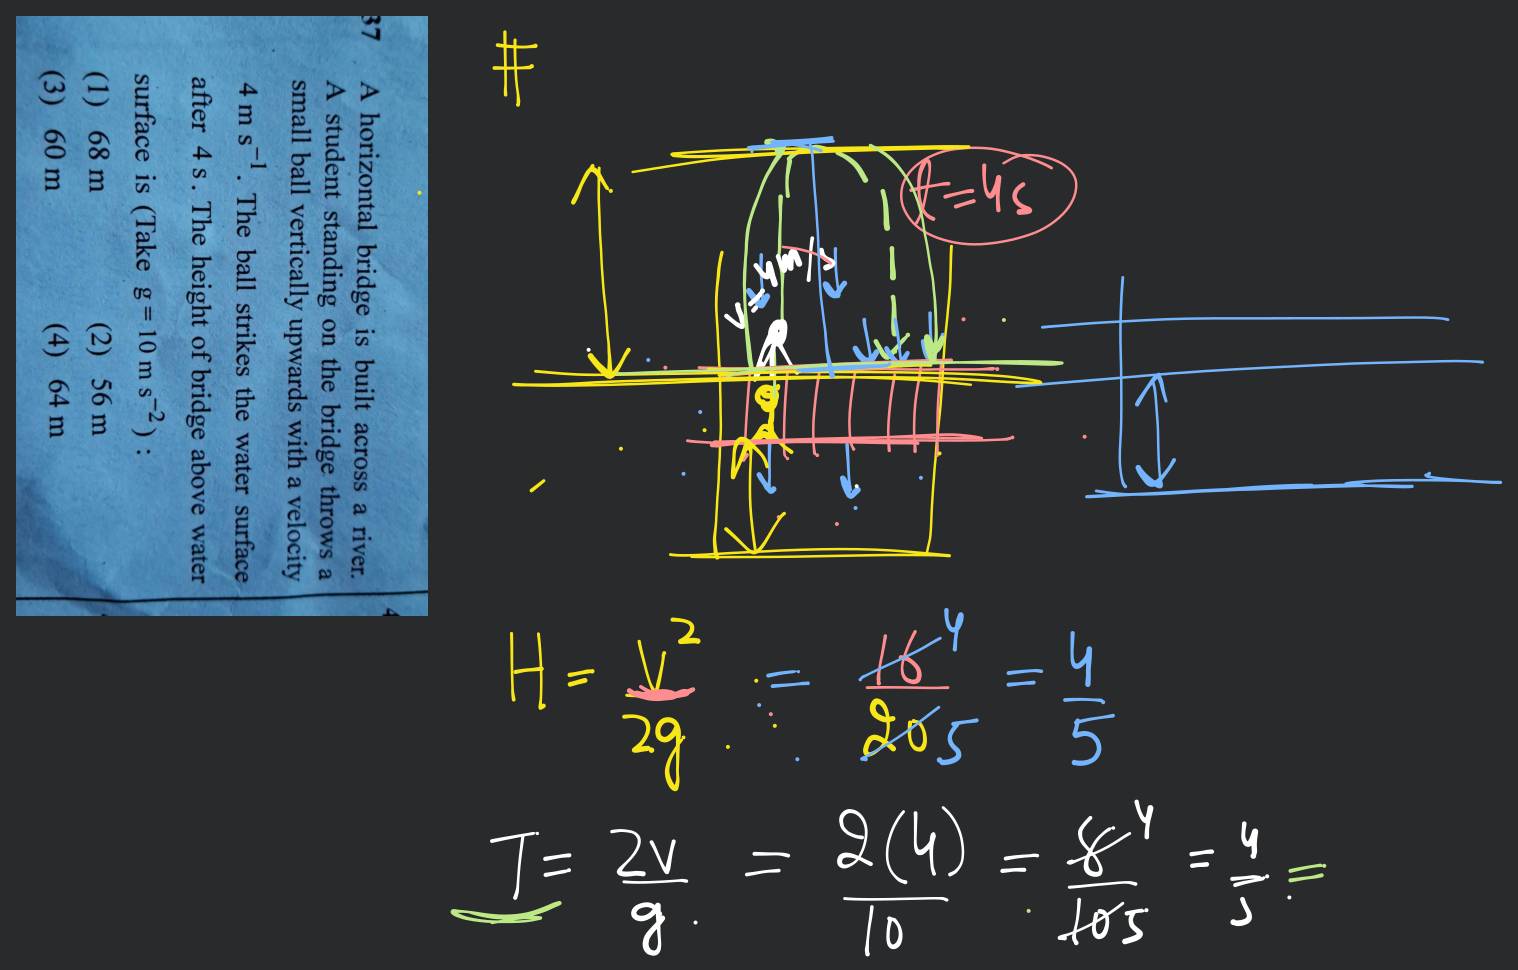 37
A horizontal bridge is built across a river.
A student standing on the bridge throws a
small ball vertically upwards with a velocity
4 m s⁻¹. The ball strikes the water surface
after 4 s. The height of bridge above water
surface is (Take g = 10 m s⁻²) :
(1) 68 m (2) 56 m
(3) 60 m (4) 64 m
#
t=4s
v=4m/s
H = v²/2g = 16/20 4/5 = 4/5
T = 2v/g = 2(4)/10 = 8/10 4/5 = 4/5 =